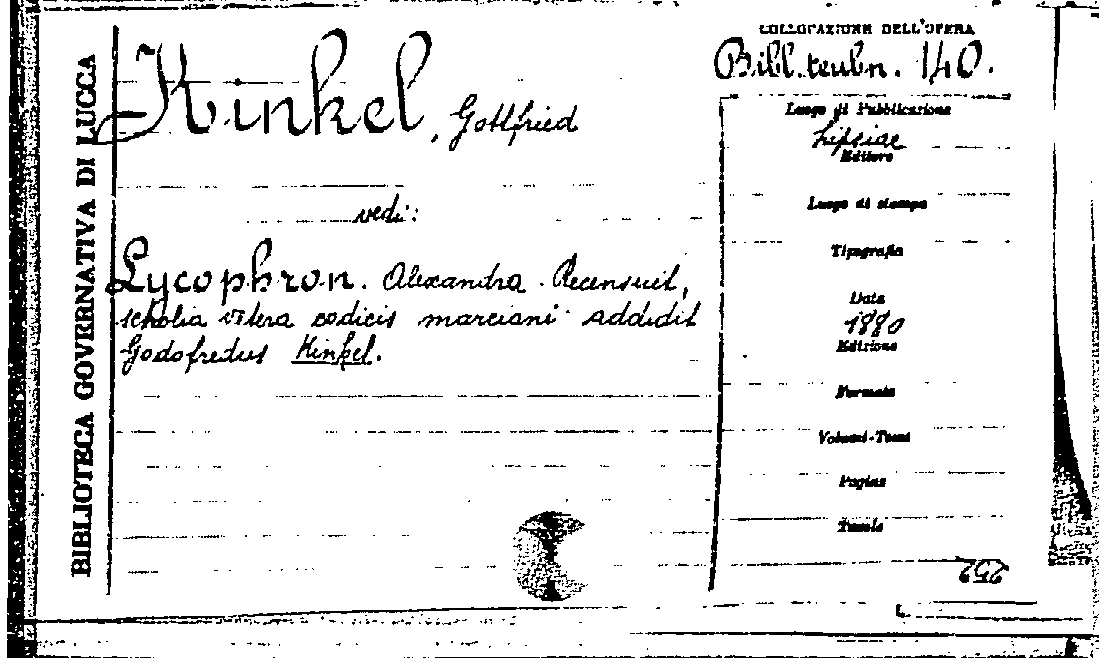 BIBLIOTECA GOVERNATIVA DI LUCCA
Kinkel, Gottfried
vedi:
Lycophron. Alexandra. Recensuit,
scholia vetera codicis marciani addidit
Godofredus Kinkel.
COLLOCAZIONE DELL'OPERA
Bibl. teubn. 140.
Luogo di Pubblicazione
Lipsiae
Editore
Luogo di stampa
Tipografia
Data
1880
Edizione
Formato
Volumi-Tomi
Pagine
Tavole